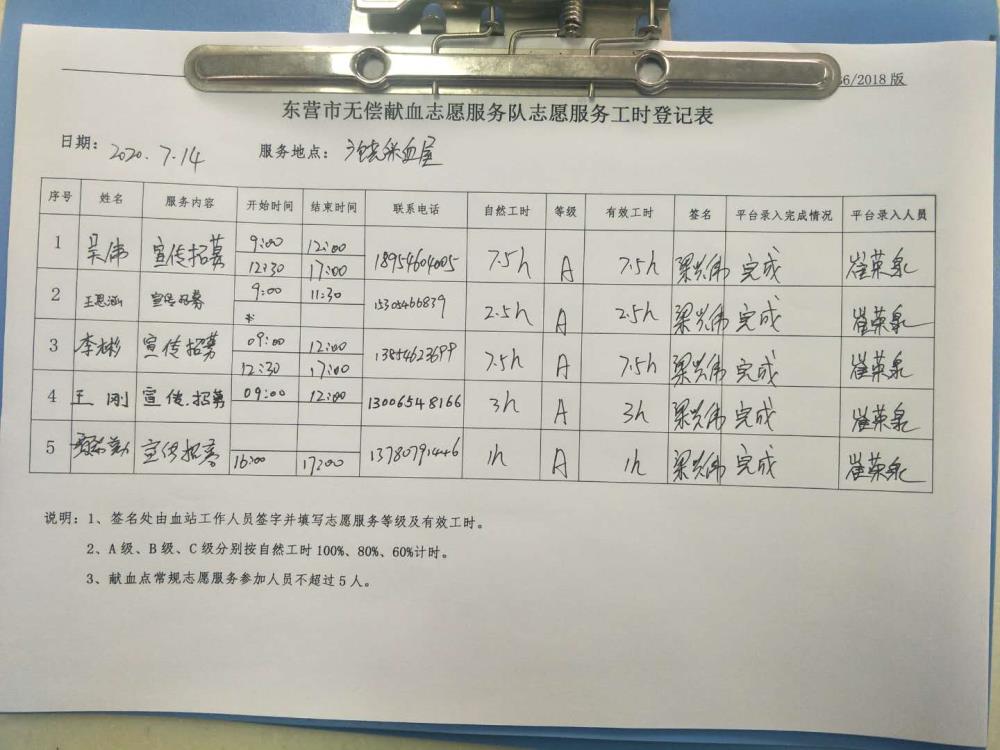 6/2018版
东营市无偿献血志愿服务队志愿服务工时登记表
日期： 2020.7.14 服务地点： 广饶采血屋
序号 姓名 服务内容 开始时间 结束时间 联系电话 自然工时 等级 有效工时 签名 平台录入完成情况 平台录入人员
1 吴伟 宣传招募 9:00 12:00 18954604005 7.5h A 7.5h 梁兴伟 完成 崔英泉
12:30 17:00
2 王恩涵 宣传招募 9:00 11:30 15305466839 2.5h A 2.5h 梁兴伟 完成 崔英泉
*
3 李彬 宣传招募 09:00 12:00 13854623699 7.5h A 7.5h 梁兴伟 完成 崔英泉
12:30 17:00
4 王刚 宣传.招募 09:00 12:00 13006548166 3h A 3h 梁兴伟 完成 崔英泉
5 宣传招募 16:00 17:00 13780791446 1h A 1h 梁兴伟 完成 崔英泉
说明：1、签名处由血站工作人员签字并填写志愿服务等级及有效工时。
2、A级、B级、C级分别按自然工时100%、80%、60%计时。
3、献血点常规志愿服务参加人员不超过5人。